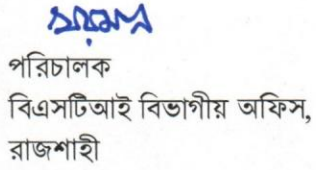 পরিচালক
বিএসটিআই বিভাগীয় অফিস,
রাজশাহী